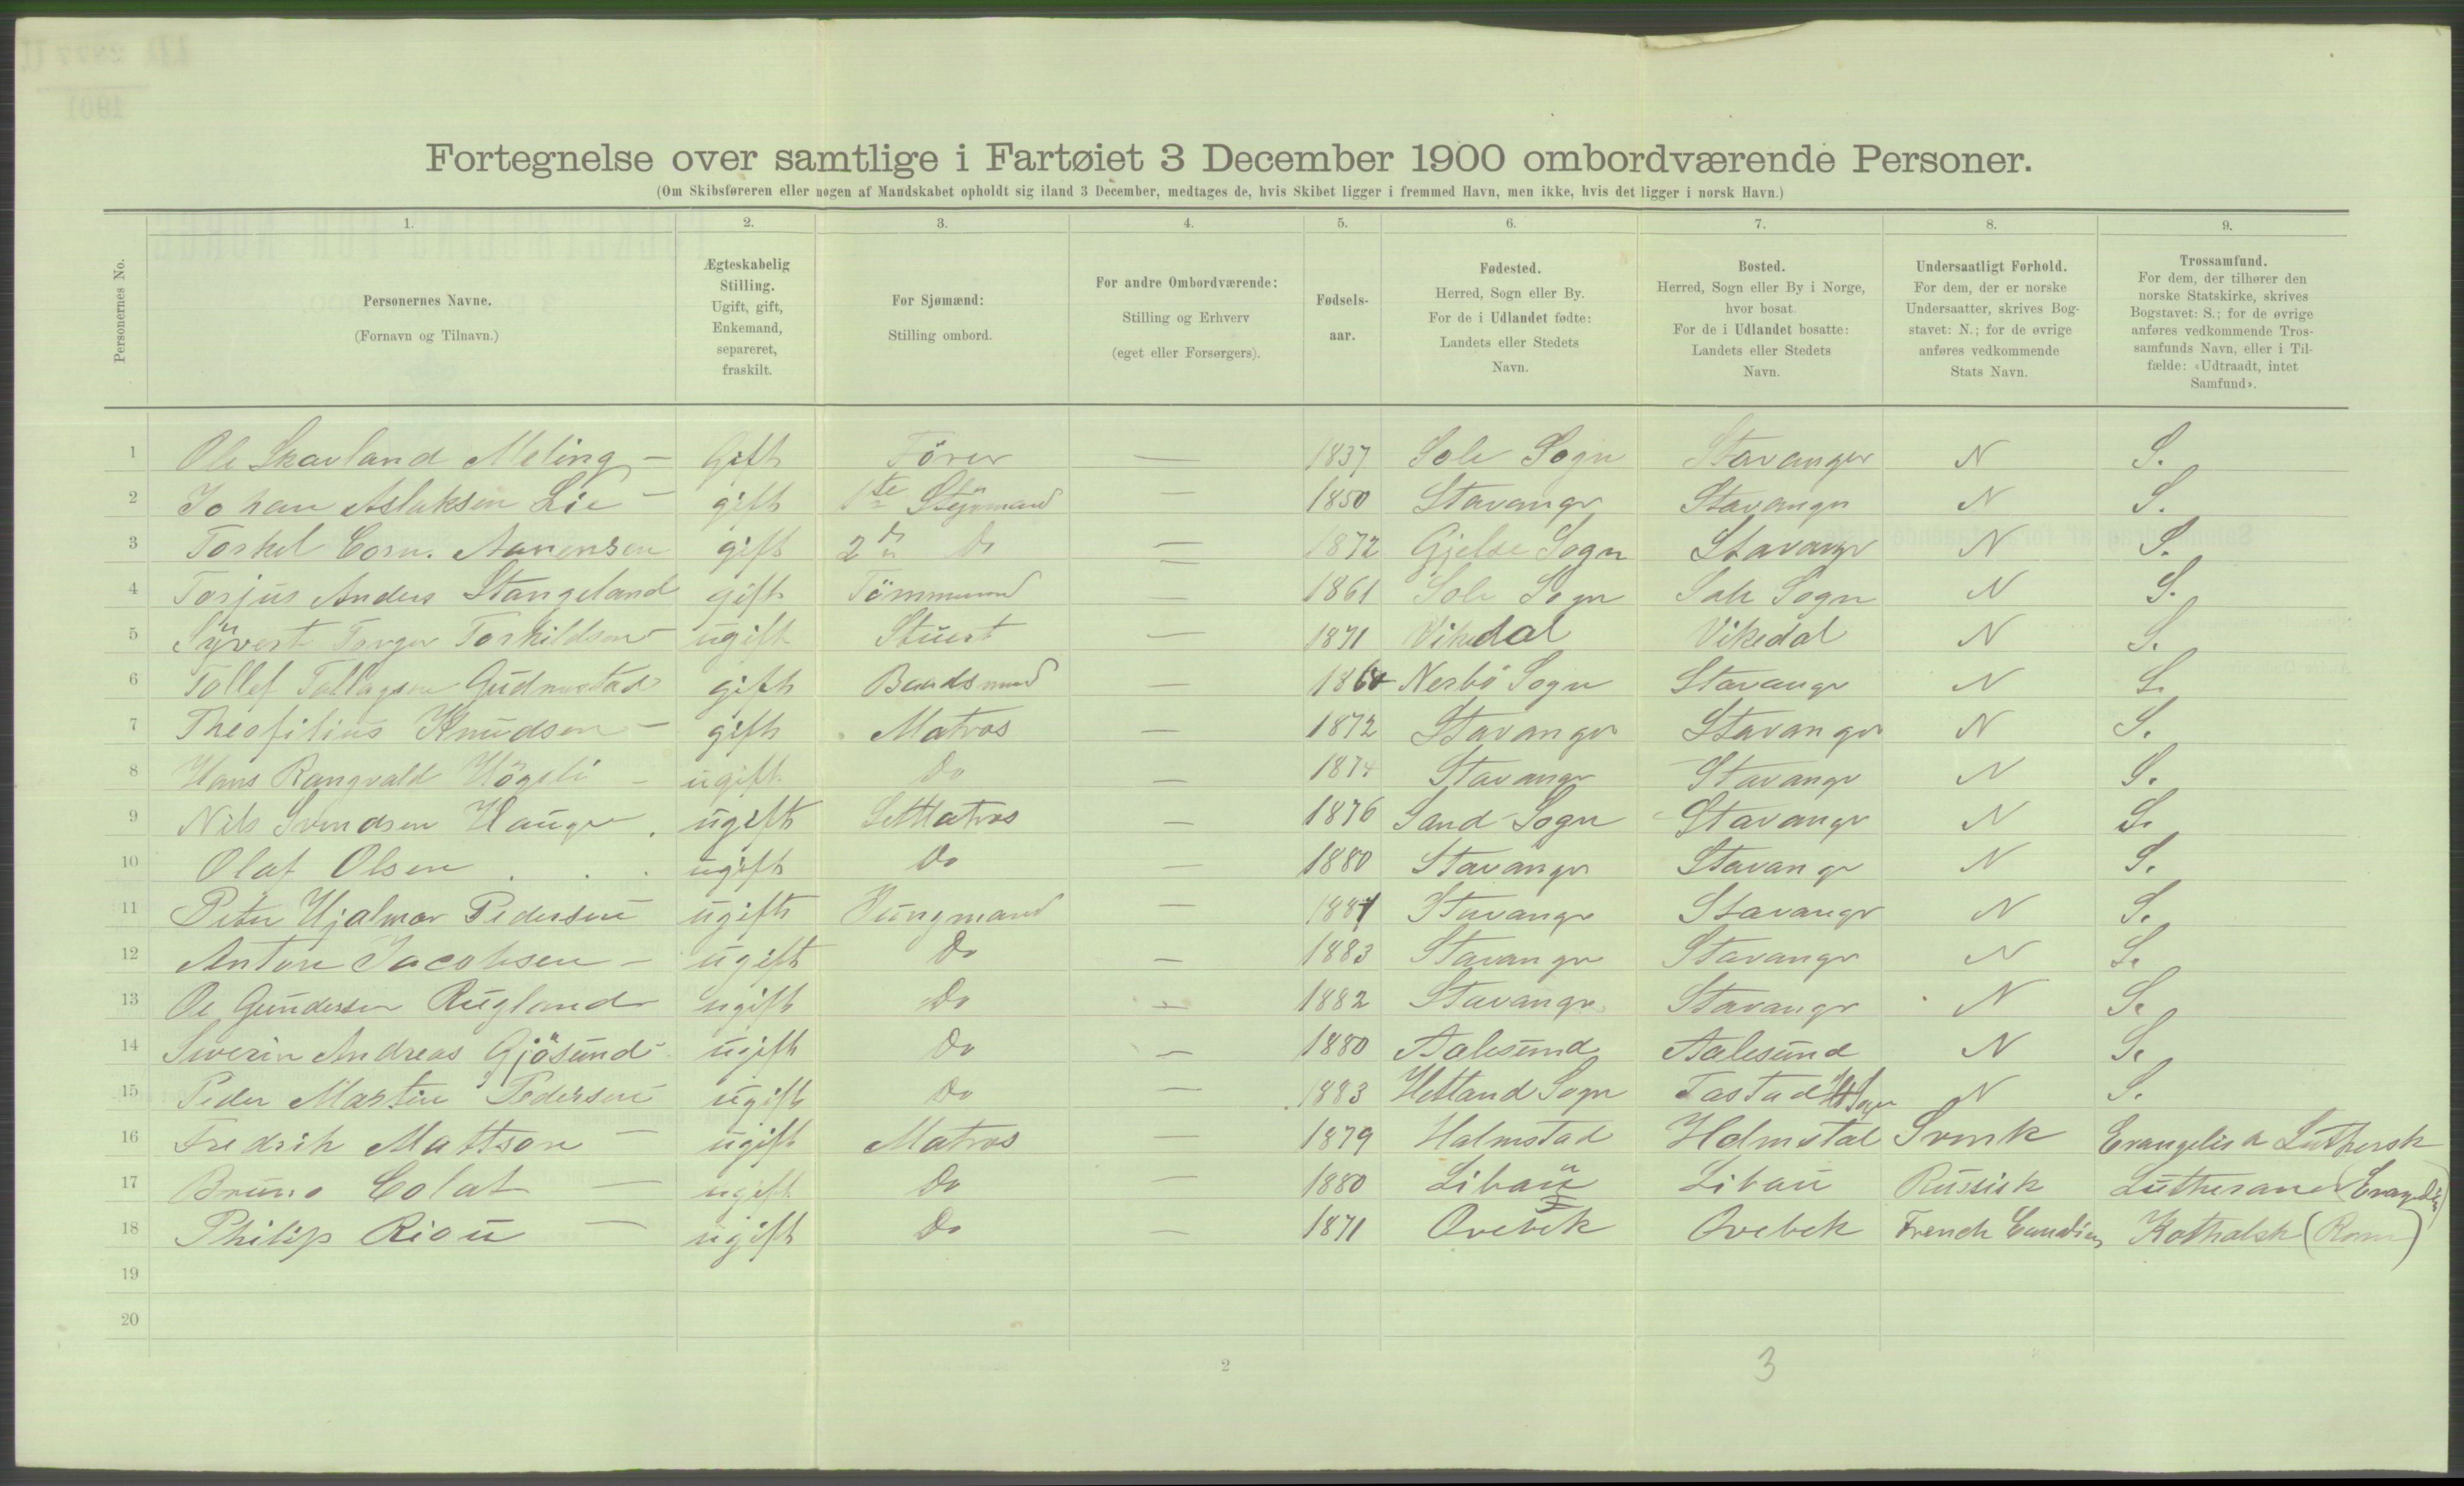 Fortegnelse over samtlige i Fartøiet 3 December 1900 ombordværende Personer.
(Om Skibsføreren eller nogen af Mandskabet opholdt sig iland 3 December, medtages de, hvis Skibet ligger i fremmed Havn, men ikke, hvis det ligger i norsk Havn.)
Personernes No.
1. 2. 3. 4. 5. 6. 7. 8. 9.
Personernes Navne.
(Fornavn og Tilnavn.)
Ægteskabelig
Stilling.
Ugift, gift,
Enkemand,
separeret,
fraskilt.
For Sjømænd:
Stilling ombord.
For andre Ombordværende:
Stilling og Erhverv
(eget eller Forsørgers).
Fødsels-
aar.
Fødested.
Herred, Sogn eller By.
For de i Udlandet fødte:
Landets eller Stedets
Navn.
Bosted.
Herred, Sogn eller By i Norge,
hvor bosat.
For de i Udlandet bosatte:
Landets eller Stedets
Navn.
Undersaatligt Forhold.
For dem, der er norske
Undersaatter, skrives Bog-
stavet: N.; for de øvrige
anføres vedkommende
Stats Navn.
Trossamfund.
For dem, der tilhører den
norske Statskirke, skrives
Bogstavet: S.; for de øvrige
anføres vedkommende Tros-
samfunds Navn, eller i Til-
fælde: «Udtraadt, intet
Samfund».
1 Ole Skavland Meling — Gift Förer — 1837 Sole Sogn Stavanger N S.
2 Johan Aslaksen Lie — gift 1ste Styrmand — 1850 Stavangr Stavangr N S.
3 Torkel Corn. Aanensen gift 2n Do — 1872 Gjelse Sogn Stavangr N S.
4 Torjus Anders Stangeland gift Tömmermd — 1861 Sole Sogn Sole Sogn N S.
5 Syvert Torger Torkildsen ugift Stuert — 1871 Vikedal Vikedal N S.
6 Tollef Tollagsen gift Baadsmand — Nerbö Sogn Stavangr N S.
7 Theofilius Knudsen — gift Matros — 1872 Stavangr Stavangr N S.
8 Hans Rangvald Högeli — ugift Do — 1874 Stavangr Stavangr N S.
9 Nils Svendsen Hauge . ugift LetMatros — 1876 Sand Sogn Stavangr N S.
10 Olaf Olsen . . . ugift Do — 1880 Stavangr Stavangr N S.
11 Peter Hjalmar Pedersen ugift Jungmand — 1881 Stavangr Stavangr N S.
12 Anton Jacobsen — ugift Do — 1883 Stavangr Stavangr N S.
13 Ole Gundersen Rugland ugift Do — 1882 Stavangr Stavangr N S.
14 Severin Andreas Gjösund ugift Do — 1880 Aalesund Aalesund N S.
15 Peder Martin Pedersen ugift Do — 1883 Hetland Sogn Tastad N S.
16 Fredrik Mattson — ugift Matros — 1879 Halmstad Halmstad Svensk Evangelisk Luthersk
17 Bruno Colat — ugift Do — 1880 Libau Libau Russisk Lutheraner
18 Philip Riou — ugift Do — 1871 Qvebek Qvebek French Katholsk (Rom)
19
20
2
3